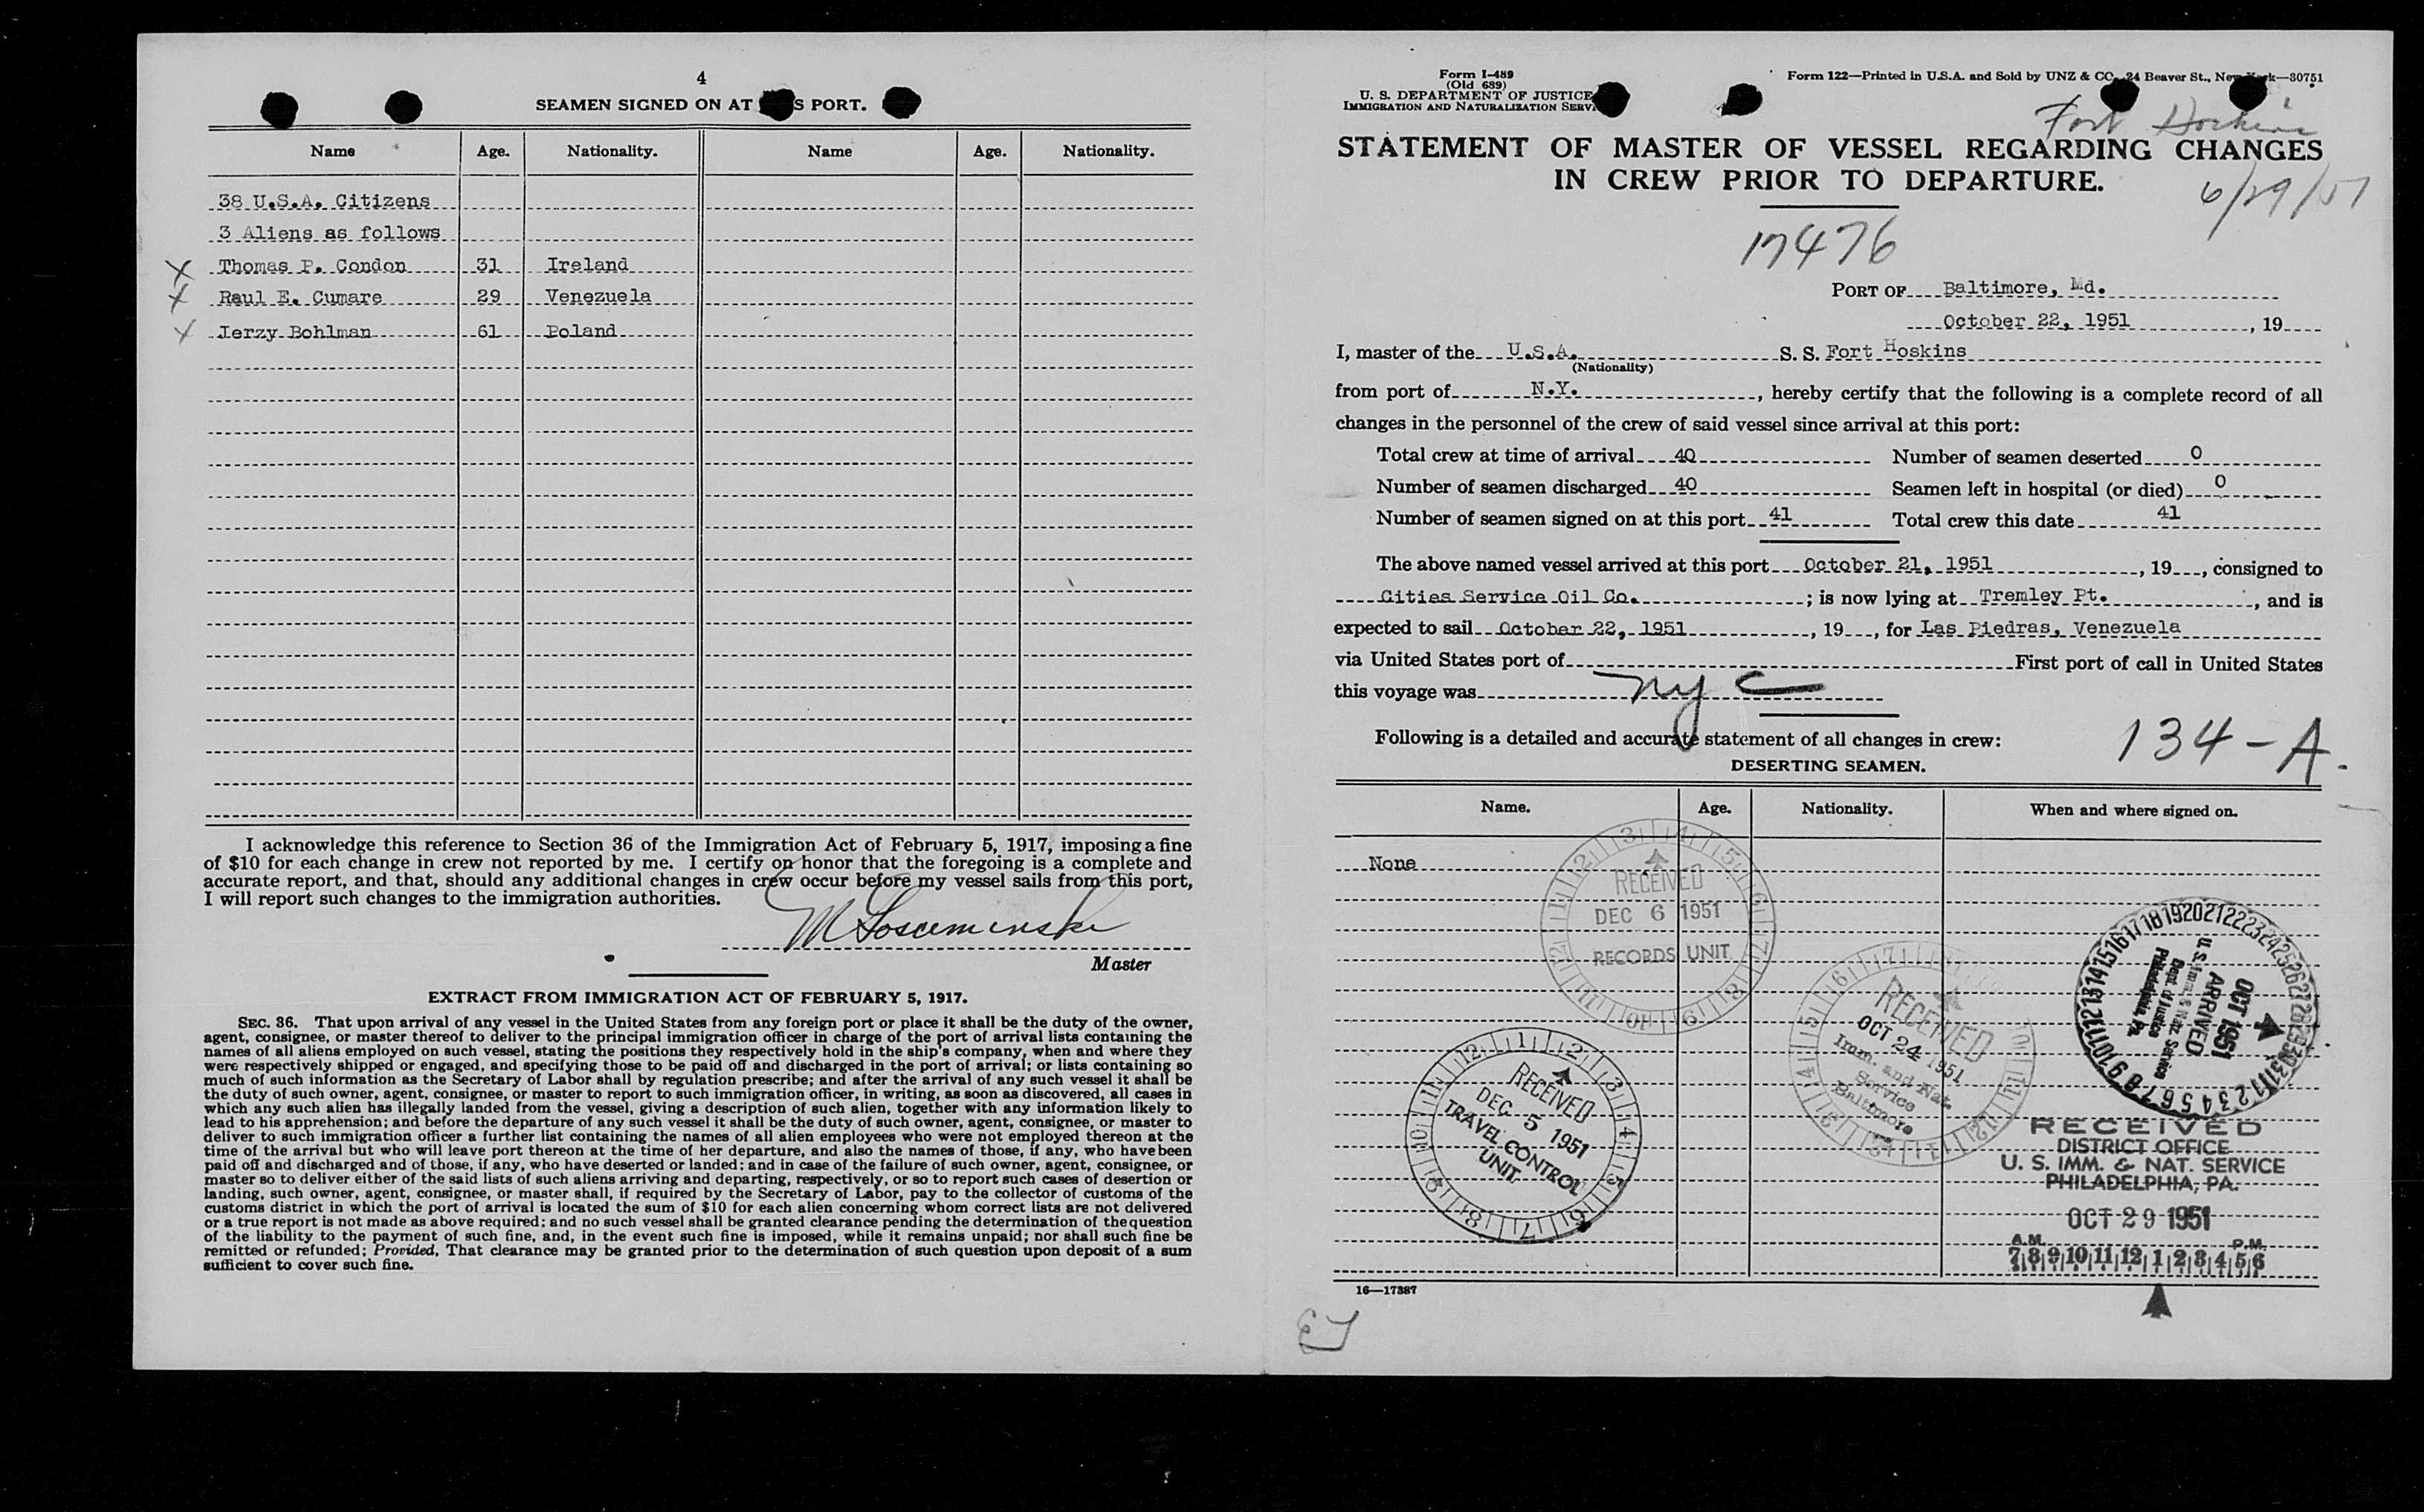 4
SEAMEN SIGNED ON AT S PORT.
Name Age. Nationality. Name Age. Nationality.
38 U.S.A. Citizens
3 Aliens as follows
X Thomas P. Condon 31 Ireland
X Raul E. Cumare 29 Venezuela
X Jerzy Bohlman 61 Poland
I acknowledge this reference to Section 36 of the Immigration Act of February 5, 1917, imposing a fine
of $10 for each change in crew not reported by me. I certify on honor that the foregoing is a complete and
accurate report, and that, should any additional changes in crew occur before my vessel sails from this port,
I will report such changes to the immigration authorities.
Master
EXTRACT FROM IMMIGRATION ACT OF FEBRUARY 5, 1917.
SEC. 36. That upon arrival of any vessel in the United States from any foreign port or place it shall be the duty of the owner,
agent, consignee, or master thereof to deliver to the principal immigration officer in charge of the port of arrival lists containing the
names of all aliens employed on such vessel, stating the positions they respectively hold in the ship's company, when and where they
were respectively shipped or engaged, and specifying those to be paid off and discharged in the port of arrival; or lists containing so
much of such information as the Secretary of Labor shall by regulation prescribe; and after the arrival of any such vessel it shall be
the duty of such owner, agent, consignee, or master to report to such immigration officer, in writing, as soon as discovered, all cases in
which any such alien has illegally landed from the vessel, giving a description of such alien, together with any information likely to
lead to his apprehension; and before the departure of any such vessel it shall be the duty of such owner, agent, consignee, or master to
deliver to such immigration officer a further list containing the names of all alien employees who were not employed thereon at the
time of the arrival but who will leave port thereon at the time of her departure, and also the names of those, if any, who have been
paid off and discharged and of those, if any, who have deserted or landed; and in case of the failure of such owner, agent, consignee, or
master so to deliver either of the said lists of such aliens arriving and departing, respectively, or so to report such cases of desertion or
landing, such owner, agent, consignee, or master shall, if required by the Secretary of Labor, pay to the collector of customs of the
customs district in which the port of arrival is located the sum of $10 for each alien concerning whom correct lists are not delivered
or a true report is not made as above required; and no such vessel shall be granted clearance pending the determination of the question
of the liability to the payment of such fine, and, in the event such fine is imposed, while it remains unpaid; nor shall such fine be
remitted or refunded; Provided, That clearance may be granted prior to the determination of such question upon deposit of a sum
sufficient to cover such fine.
Form I-489
(Old 689)
U. S. DEPARTMENT OF JUSTICE
IMMIGRATION AND NATURALIZATION SERV
Form 122—Printed in U.S.A. and Sold by UNZ & CO. 24 Beaver St., New York—30751
Fort Hoskins
STATEMENT OF MASTER OF VESSEL REGARDING CHANGES
IN CREW PRIOR TO DEPARTURE.
6/29/51
17476
PORT OF Baltimore, Md.
October 22, 1951, 19
I, master of the U.S.A. S. S. Fort Hoskins
(Nationality)
from port of N.Y., hereby certify that the following is a complete record of all
changes in the personnel of the crew of said vessel since arrival at this port:
Total crew at time of arrival 40 Number of seamen deserted 0
Number of seamen discharged 40 Seamen left in hospital (or died) 0
Number of seamen signed on at this port 41 Total crew this date 41
The above named vessel arrived at this port October 21, 1951, 19, consigned to
Cities Service Oil Co.; is now lying at Tremley Pt., and is
expected to sail October 22, 1951, 19, for Las Piedras, Venezuela
via United States port of First port of call in United States
this voyage was nyc
Following is a detailed and accurate statement of all changes in crew:
134-A.
DESERTING SEAMEN.
Name. Age. Nationality. When and where signed on.
None
RECEIVED
DEC 6 1951
RECORDS UNIT
RECEIVED
OCT 24 1951
Imm. and Nat.
Service
Baltimore
OCT 1951
ARRIVED
U. S. Imm. & Natz. Service
Dept. of Justice
Philadelphia, Pa.
RECEIVED
DEC 5 1951
TRAVEL CONTROL
UNIT
RECEIVED
DISTRICT OFFICE
U. S. IMM. & NAT. SERVICE
PHILADELPHIA, PA.
OCT 29 1951
A.M. P.M.
7 8 9 10 11 12 1 2 3 4 5 6
16—17387